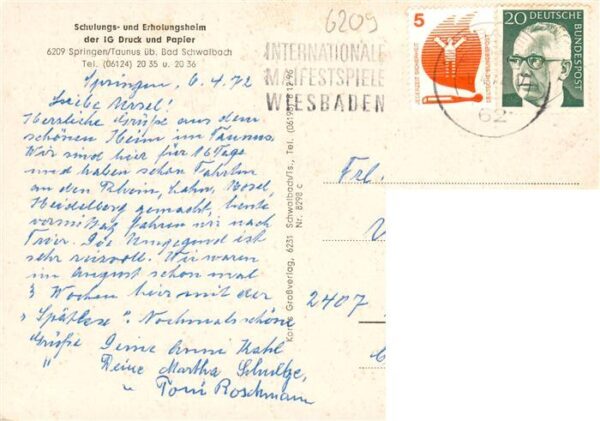 Schulungs- und Erholungsheim
der IG Druck und Papier
6209 Springen/Taunus üb. Bad Schwalbach
Tel. (06124) 20 35 u. 20 36
Springen, 6.4.72
Liebe Ursel!
Herzliche Grüße aus dem
schönen Heim im Taunus.
Wir sind hier für 16 Tage
und haben schon Fahrten
an den Rhein, Lahn, Mosel,
Heidelberg gemacht, heute
vormittag fahren wir nach
Trier. Die Umgegend ist
sehr reizvoll. Wir waren
im August schon mal
3 Wochen hier mit der
"Spätlese". Nochmals schöne
Grüße Deine Anni Kahl
" Deine Martha Schultze,
" Toni Roschmann
Korns Großverlag, 6231 Schwalbach/Ts., Tel. (06196) 8 12 96
Nr. 8298 c
6209
INTERNATIONALE
MAIFESTSPIELE
WIESBADEN
62
5
JEDERZEIT SICHERHEIT
DEUTSCHE BUNDESPOST
20 DEUTSCHE
BUNDESPOST
Frl.
2407